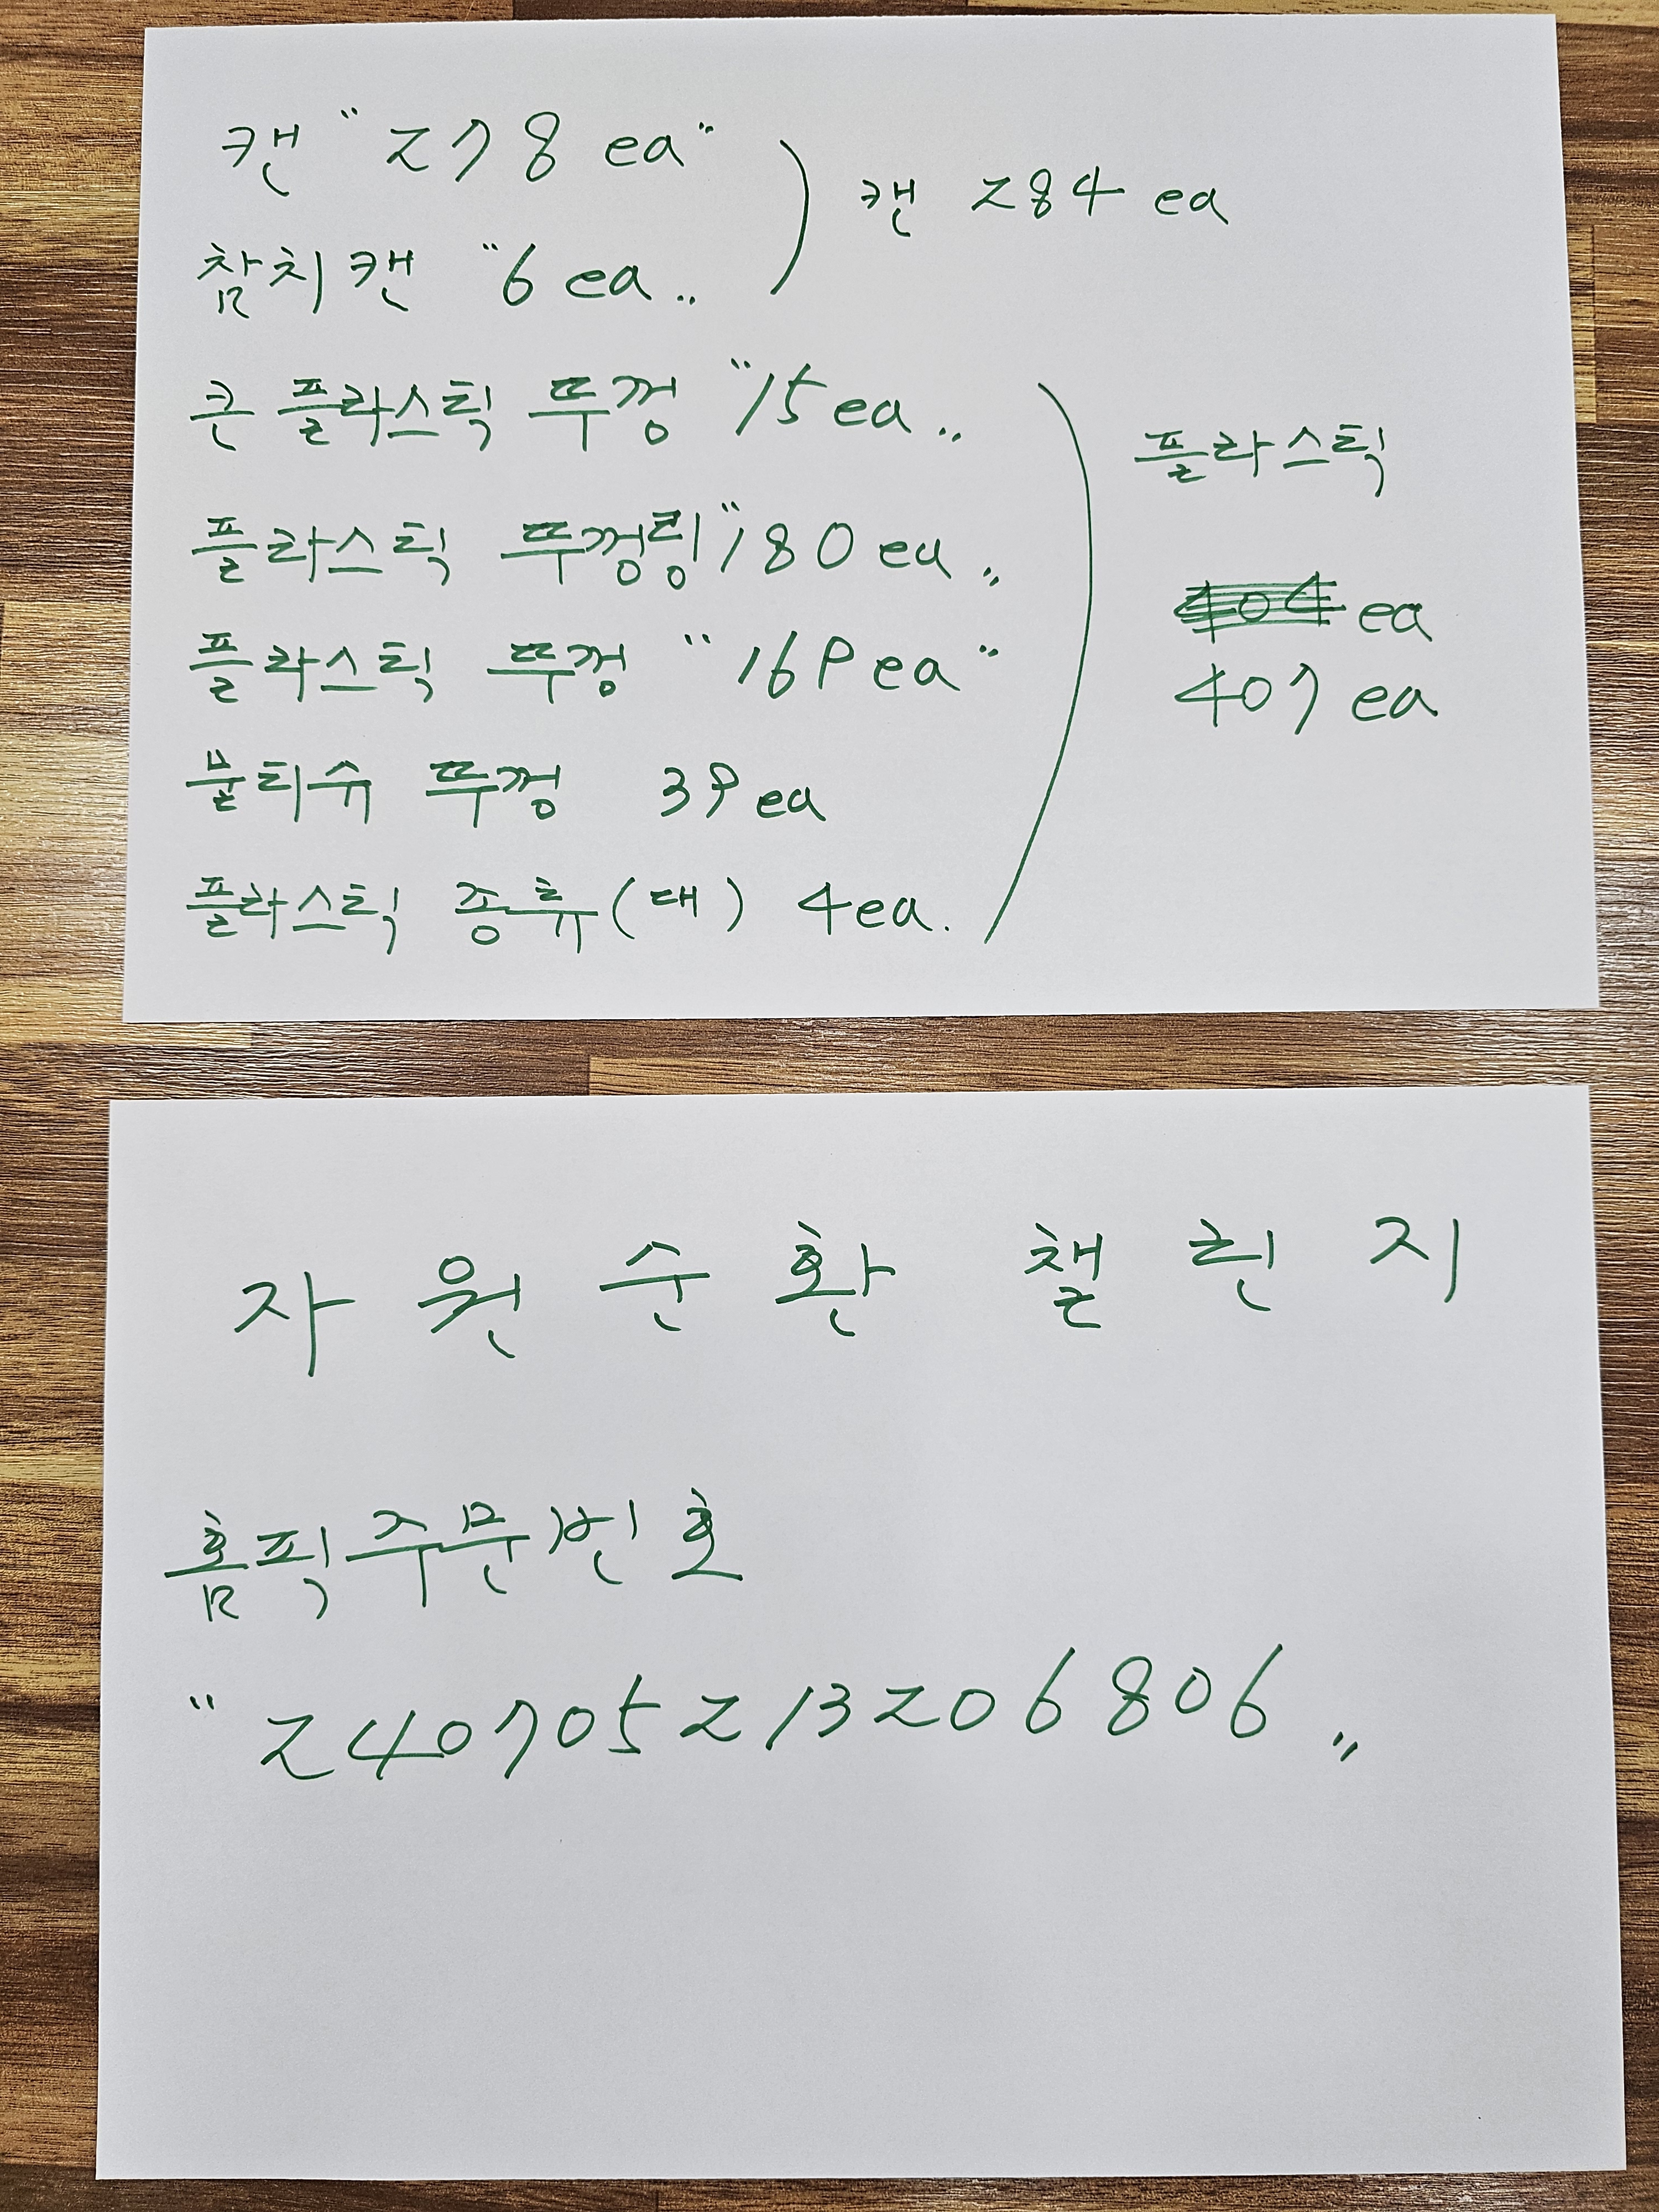 캔 "278 ea"
참치캔 "6 ea"
캔 284 ea
큰 플라스틱 뚜껑 "15 ea"
플라스틱 뚜껑링 "180 ea"
플라스틱 뚜껑 "169 ea"
물티슈 뚜껑 39 ea
플라스틱 종류(대) 4 ea.
플라스틱
404 ea
407 ea
자원순환 챌린지
홈픽주문번호
"240705213206806"